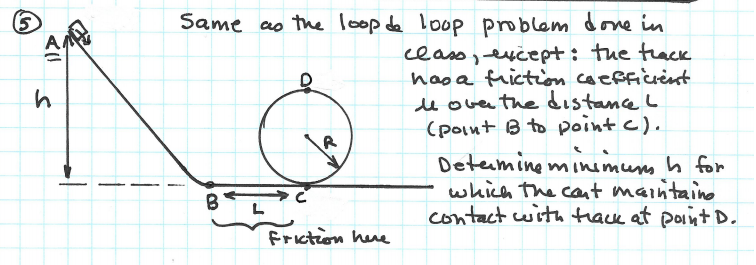 5 Same as the loop de loop problem done in
A
class, except: the track
has a friction coefficient
h
D
μ over the distance L
(point B to point C).
R
Determine minimum h for
which the cart maintains
B L C
contact with track at point D.
Friction here